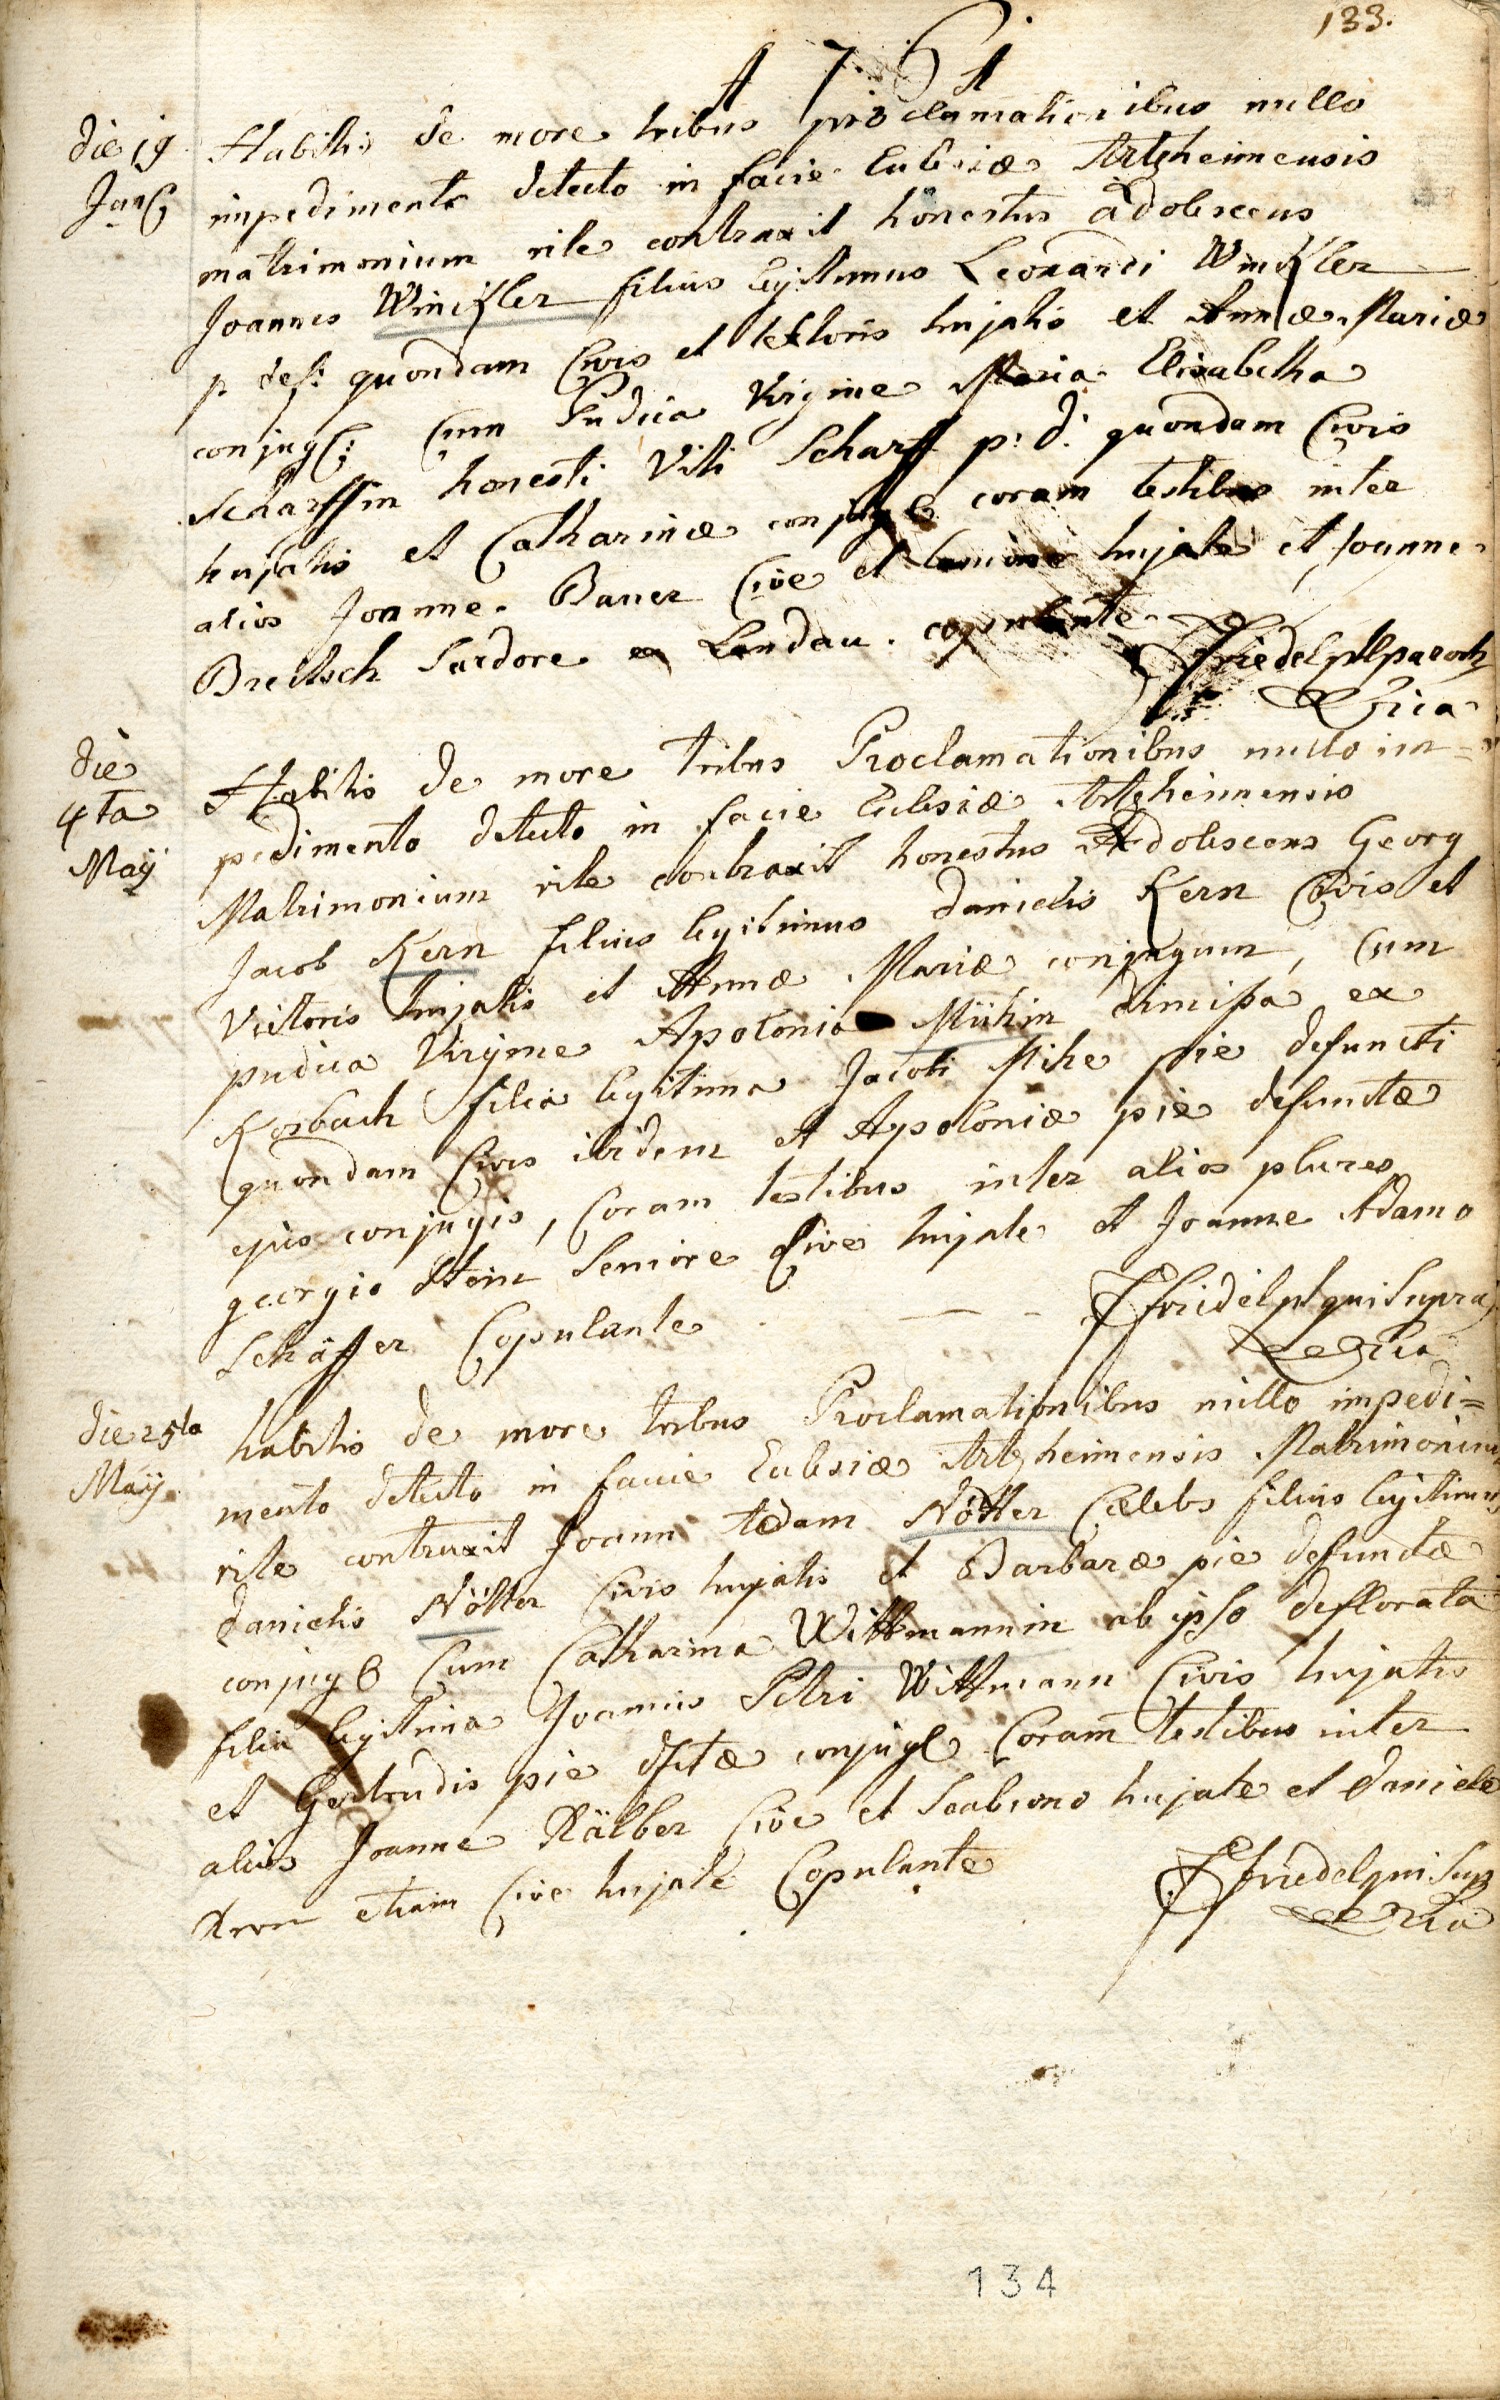 133.
1761
die 19 Habitis de more tribus proclamationibus nullo
Janr impedimento detecto in facie Eclesiæ Artzheimensis
matrimonium rite contraxit honestus adolescens
Joannes Winckler filius legitimus Leonardi Winckler
p. def: quondam Civis et textoris hujatis et Annæ Mariæ
conjug: Cum Pudica Virgine Maria Elisabetha
Scharffin honesti Viti Scharff p: d: quondam Civis
hujatis et Catharinæ conjug coram testibus inter
alios Joanne Bauer Cive et hujate et Joanne
Breitsch Sardore ex Landau. copulante
Friedel plparoch
die Habitis de more tribus Proclamationibus nullo im=
4ta pedimento detecto in facie Eclesiæ Artzheimensis
Maÿ Matrimonium rite contraxit honestus Adolescens Georg
Jacob Kern filius legitimus danielis Kern Civis et
Vietoris hujatis et Annæ Mariæ conjugum, Cum
pudica Virgine Apolonia Mühin dimissa ex
Korbach filia legitima Jacobi Mihe pie defuncti
quondam Civis ibidem et Apoloniæ pie defunctæ
ejus conjugis, Coram testibus inter alios plures
georgio Stein Seniore Cive hujate et Joanne Adamo
Schäffer Copulante FFridel pl qui Supra
die 25ta habitis de more tribus Proclamationibus nullo impedi=
Maÿ mento detecto in facie Eclesiæ Artzheimensis Matrimonium
rite contraxit Joann Adam Nötter Cælebs filius legitimus
danielis Nötter Civis hujatis et Barbaræ pie defunctæ
conjug Cum Catharina Wittmannin ab ipso deflorata
filia legitima Joannis Petri Wittmann Civis hujatis
et Gertrudis pie dfctæ conjug Coram testibus inter
alios Joanne Kälber Cive et Scabiono hujate et daniele
Kron etiam Cive hujate Copulante FFriedel qui Sup
134